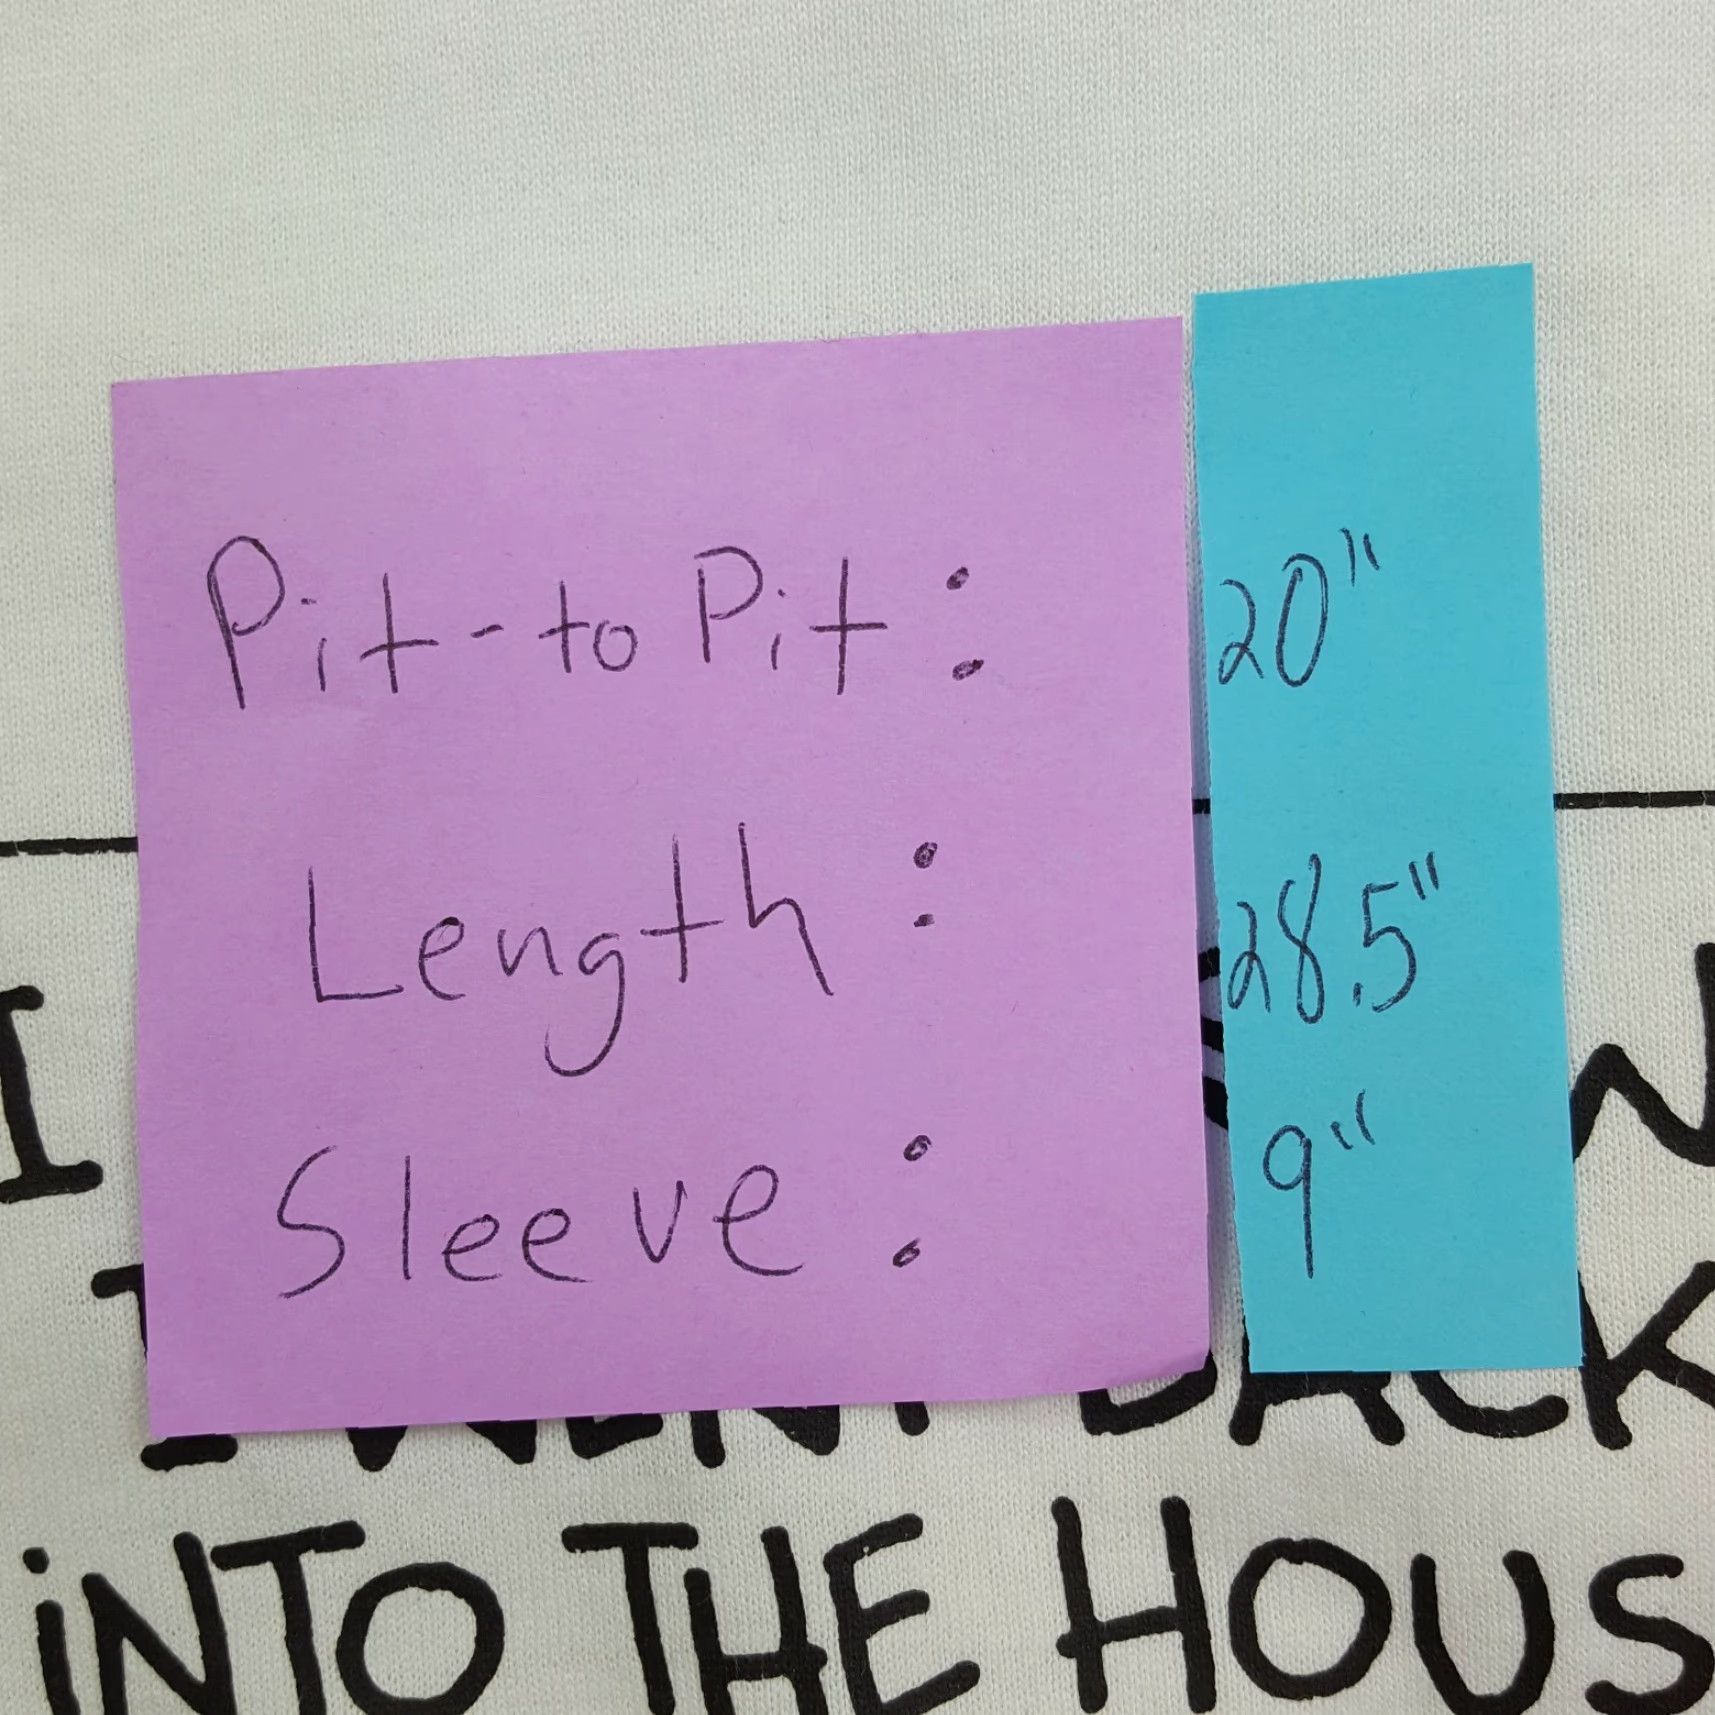 Pit-to Pit: 20"
Length: 28.5"
Sleeve: 9"
I
I WENT BACK
iNTO THE HOUS